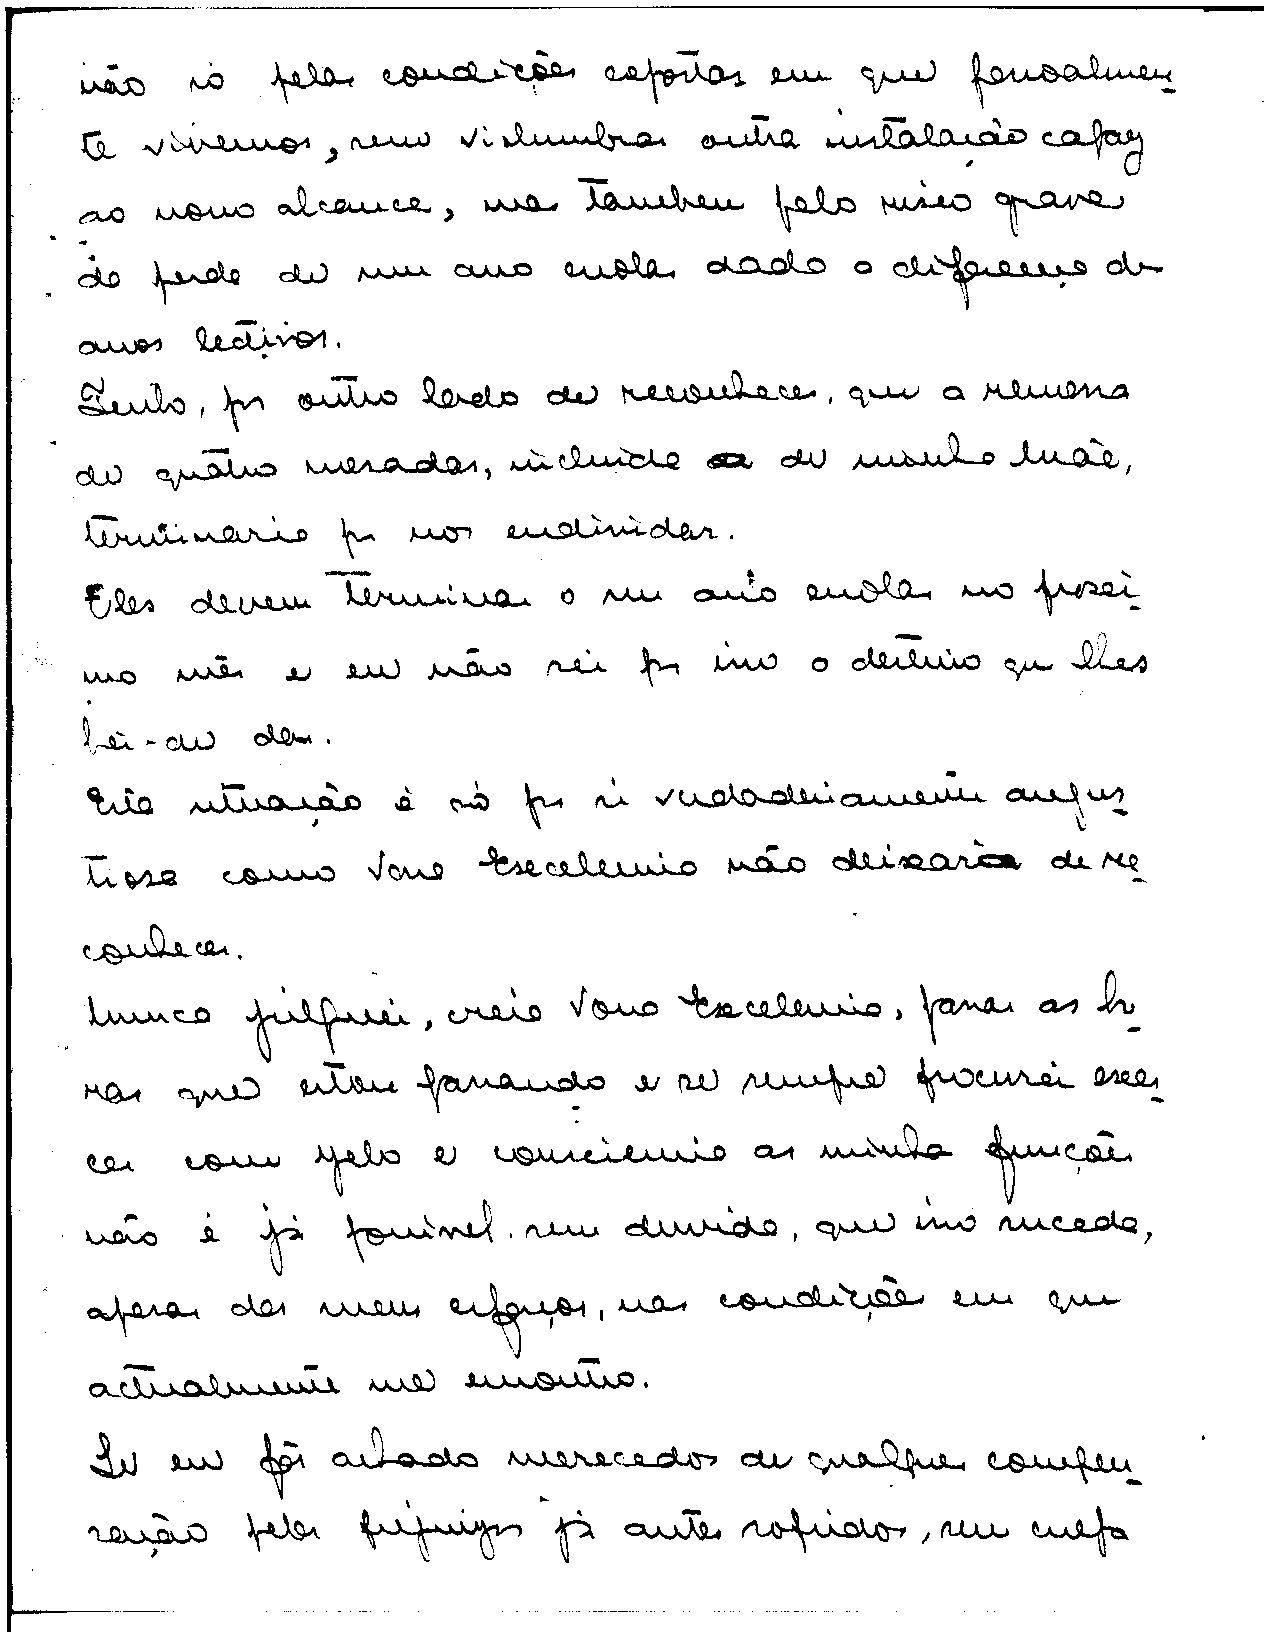 não só pelas condições expostas em que pessoalmen-
te vivemos, sem vislumbrar outra instalação capaz
ao nosso alcance, mas tambem pelo risco grave
de perda de um ano escolar dado a diferença de
anos lectivos.
Tenho, por outro lado de reconhecer, que a remessa
de quatro mesadas, incluida a de minha mãe,
terminaria por nos endividar.
Eles devem terminar o seu ano escolar no proxi-
mo mês e eu não sei por isso o destino que lhes
hei-de dar.
Esta situação é só por si verdadeiramente angus-
tiosa como Vossa Excelencia não deixará de re-
conhecer.
Nunca julguei, creia Vossa Excelencia, passar as ho-
ras que estou passando e se sempre procurei exer-
cer com zelo e consciencia as minhas funções
não é já possivel, sem duvida, que isso suceda,
apesar dos meus esforços, nas condições em que
actualmente me encontro.
Se eu fôr achado merecedor de qualquer compen-
sação pelos prejuizos já antes sofridos, sem culpa